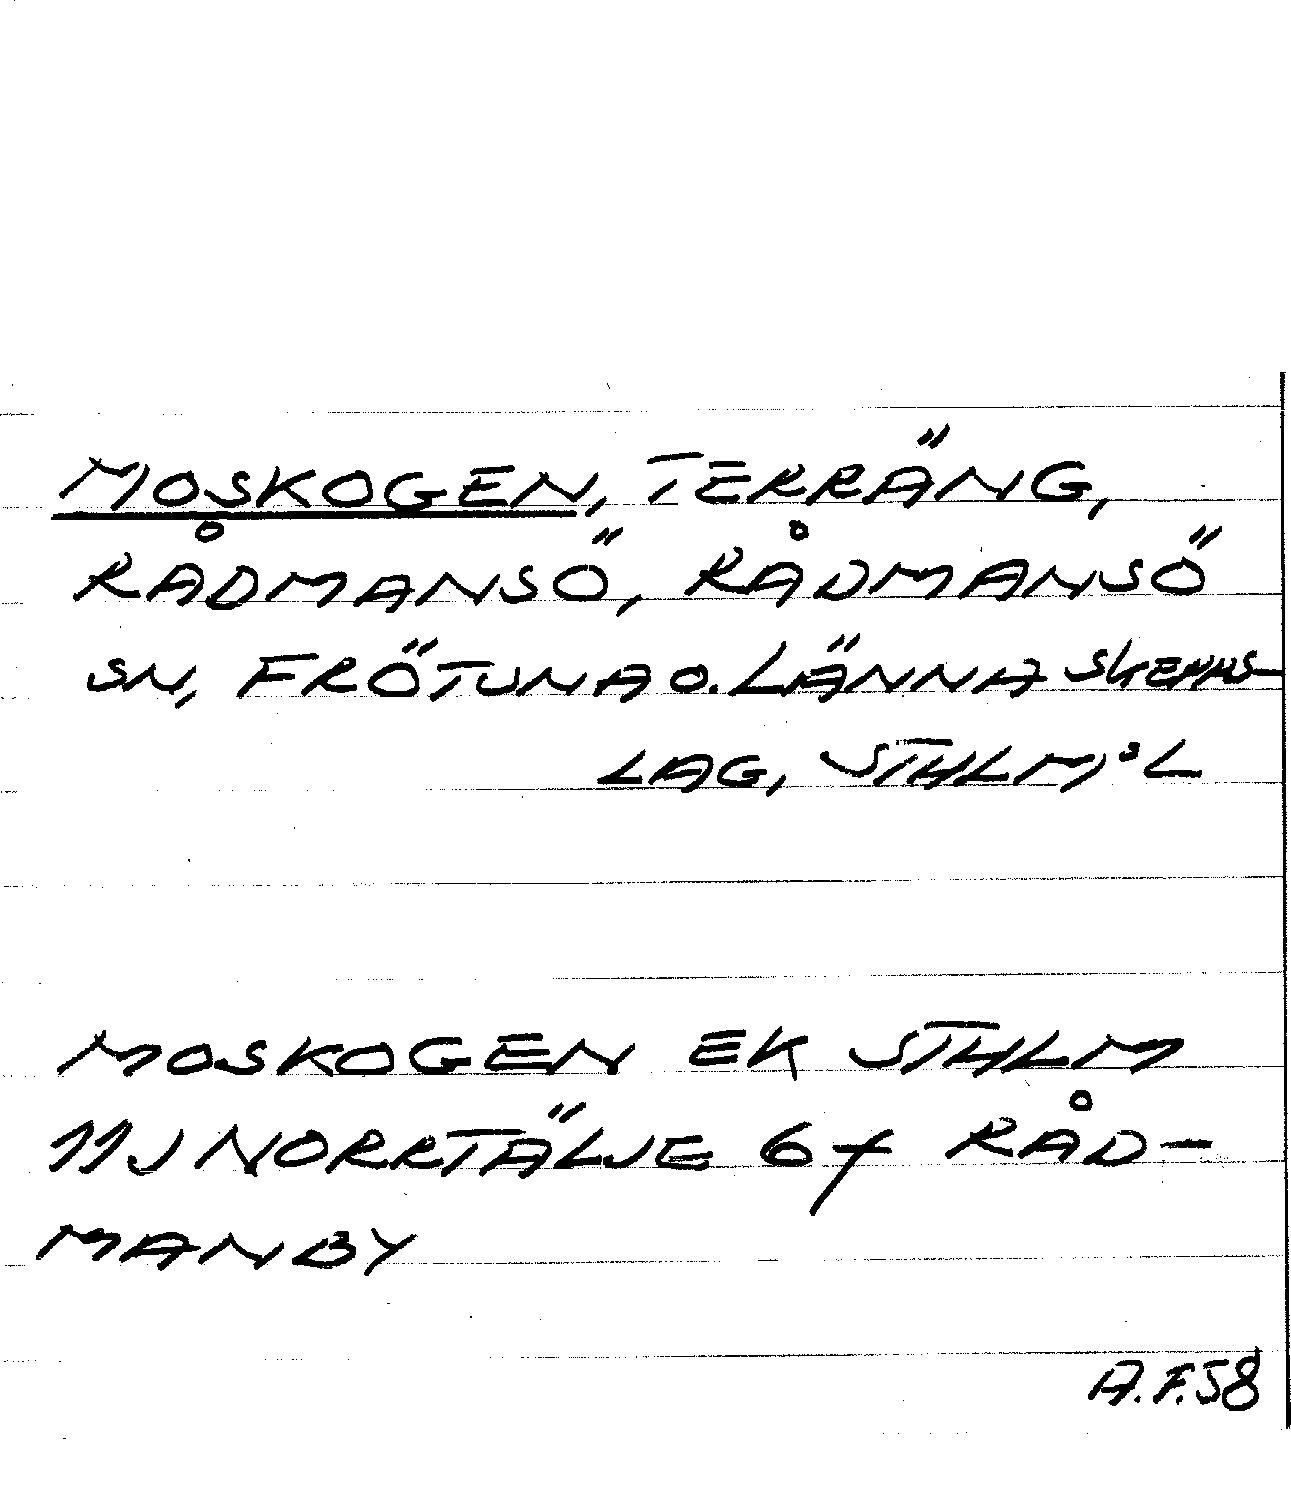 MOSKOGEN, TERRÄNG,
RÅDMANSÖ, RÅDMANSÖ
SN, FRÖTUNA O. LÄNNA SKEPPS-
LAG, STHLMS L
MOSKOGEN EK STHLM
11J NORRTÄLJE 6f RÅD-
MANBY
A.F.58